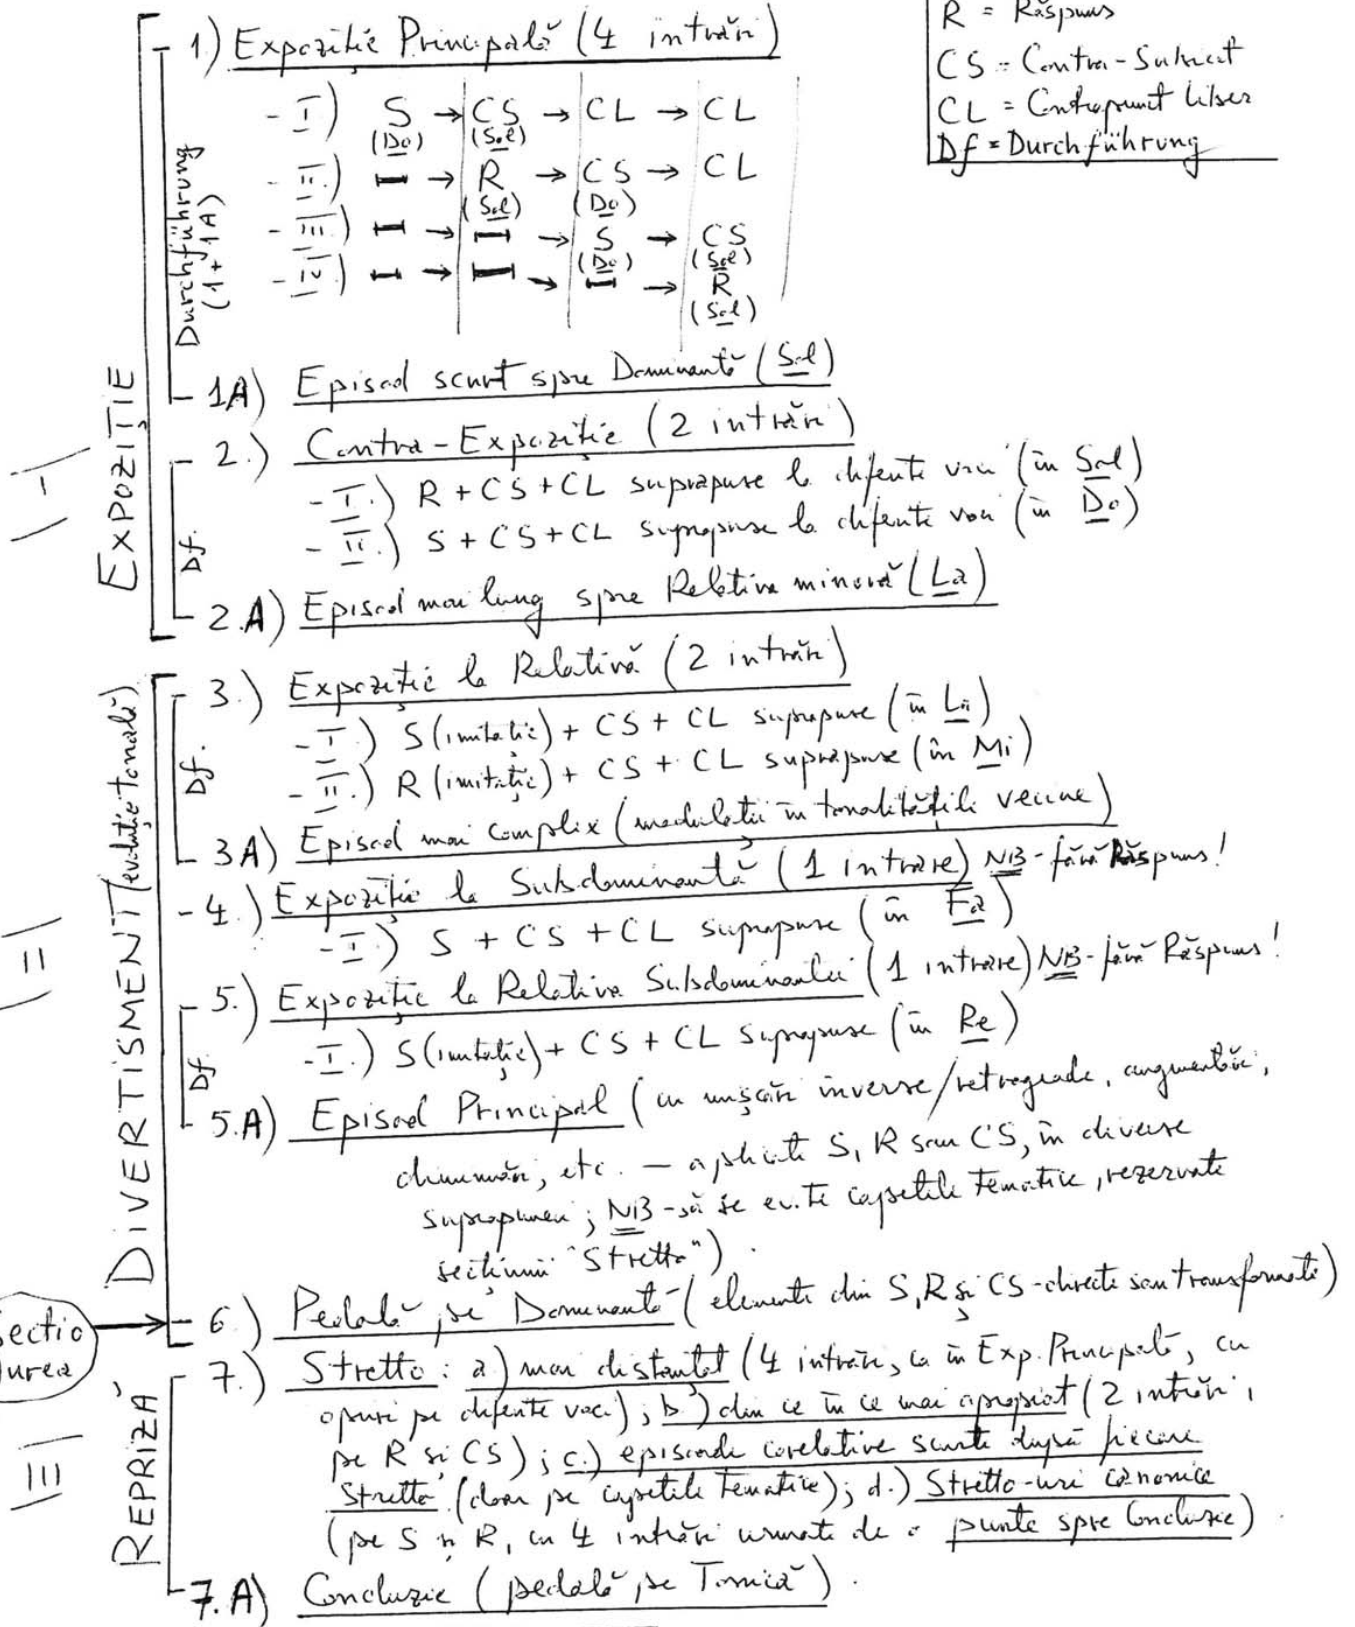 R = Răspuns
CS = Contra-Subiect
CL = Contrapunct liber
Df = Durchführung
I
EXPOZIȚIE
Durchführung
(1+1A)
1) Expoziție Principală (4 intrări)
- I) S → CS → CL → CL
(Do) (Sol)
- II) → R → CS → CL
(Sol) (Do)
- III) → → S → CS
(Do) (Sol)
- IV) → → → R
(Sol)
1A) Episod scurt spre Dominantă (Sol)
Df.
2.) Contra-Expoziție (2 intrări)
- I.) R + CS + CL suprapuse la diferite voci (în Sol)
- II.) S + CS + CL suprapuse la diferite voci (în Do)
2.A) Episod mai lung spre Relativa minoră (La)
II
DIVERTISMENT (evoluție tonală)
Df.
3.) Expoziție la Relativă (2 intrări)
- I.) S (imitație) + CS + CL suprapuse (în La)
- II.) R (imitație) + CS + CL suprapuse (în Mi)
3A) Episod mai complex (modulații în tonalitățile vecine)
- 4.) Expoziție la Subdominantă (1 intrare) NB - fără Răspuns!
- I.) S + CS + CL suprapuse (în Fa)
Df.
5.) Expoziție la Relativa Subdominantei (1 intrare) NB - fără Răspuns!
- I.) S (imitație) + CS + CL suprapuse (în Re)
5.A) Episod Principal (cu mișcări inverse/retrograde, augmentări,
diminuări, etc. — aplicate S, R sau CS, în diverse
suprapuneri; NB - să se evite capetele tematice, rezervate
secțiunii "Stretto").
6.) Pedală pe Dominantă (elemente din S, R și CS - directe sau transformate)
sectio
aurea
III
REPRIZĂ
7.) Stretto: a.) mai distanțat (4 intrări, ca în Exp. Principală, cu
opuri pe diferite voci); b.) din ce în ce mai apropiat (2 intrări,
pe R și CS); c.) episoade corelative scurte după fiecare
Stretto (doar pe capetele tematice); d.) Stretto-uri canonice
(pe S și R, cu 4 intrări urmate de o punte spre Concluzie).
7.A) Concluzie (pedală pe Tonică).